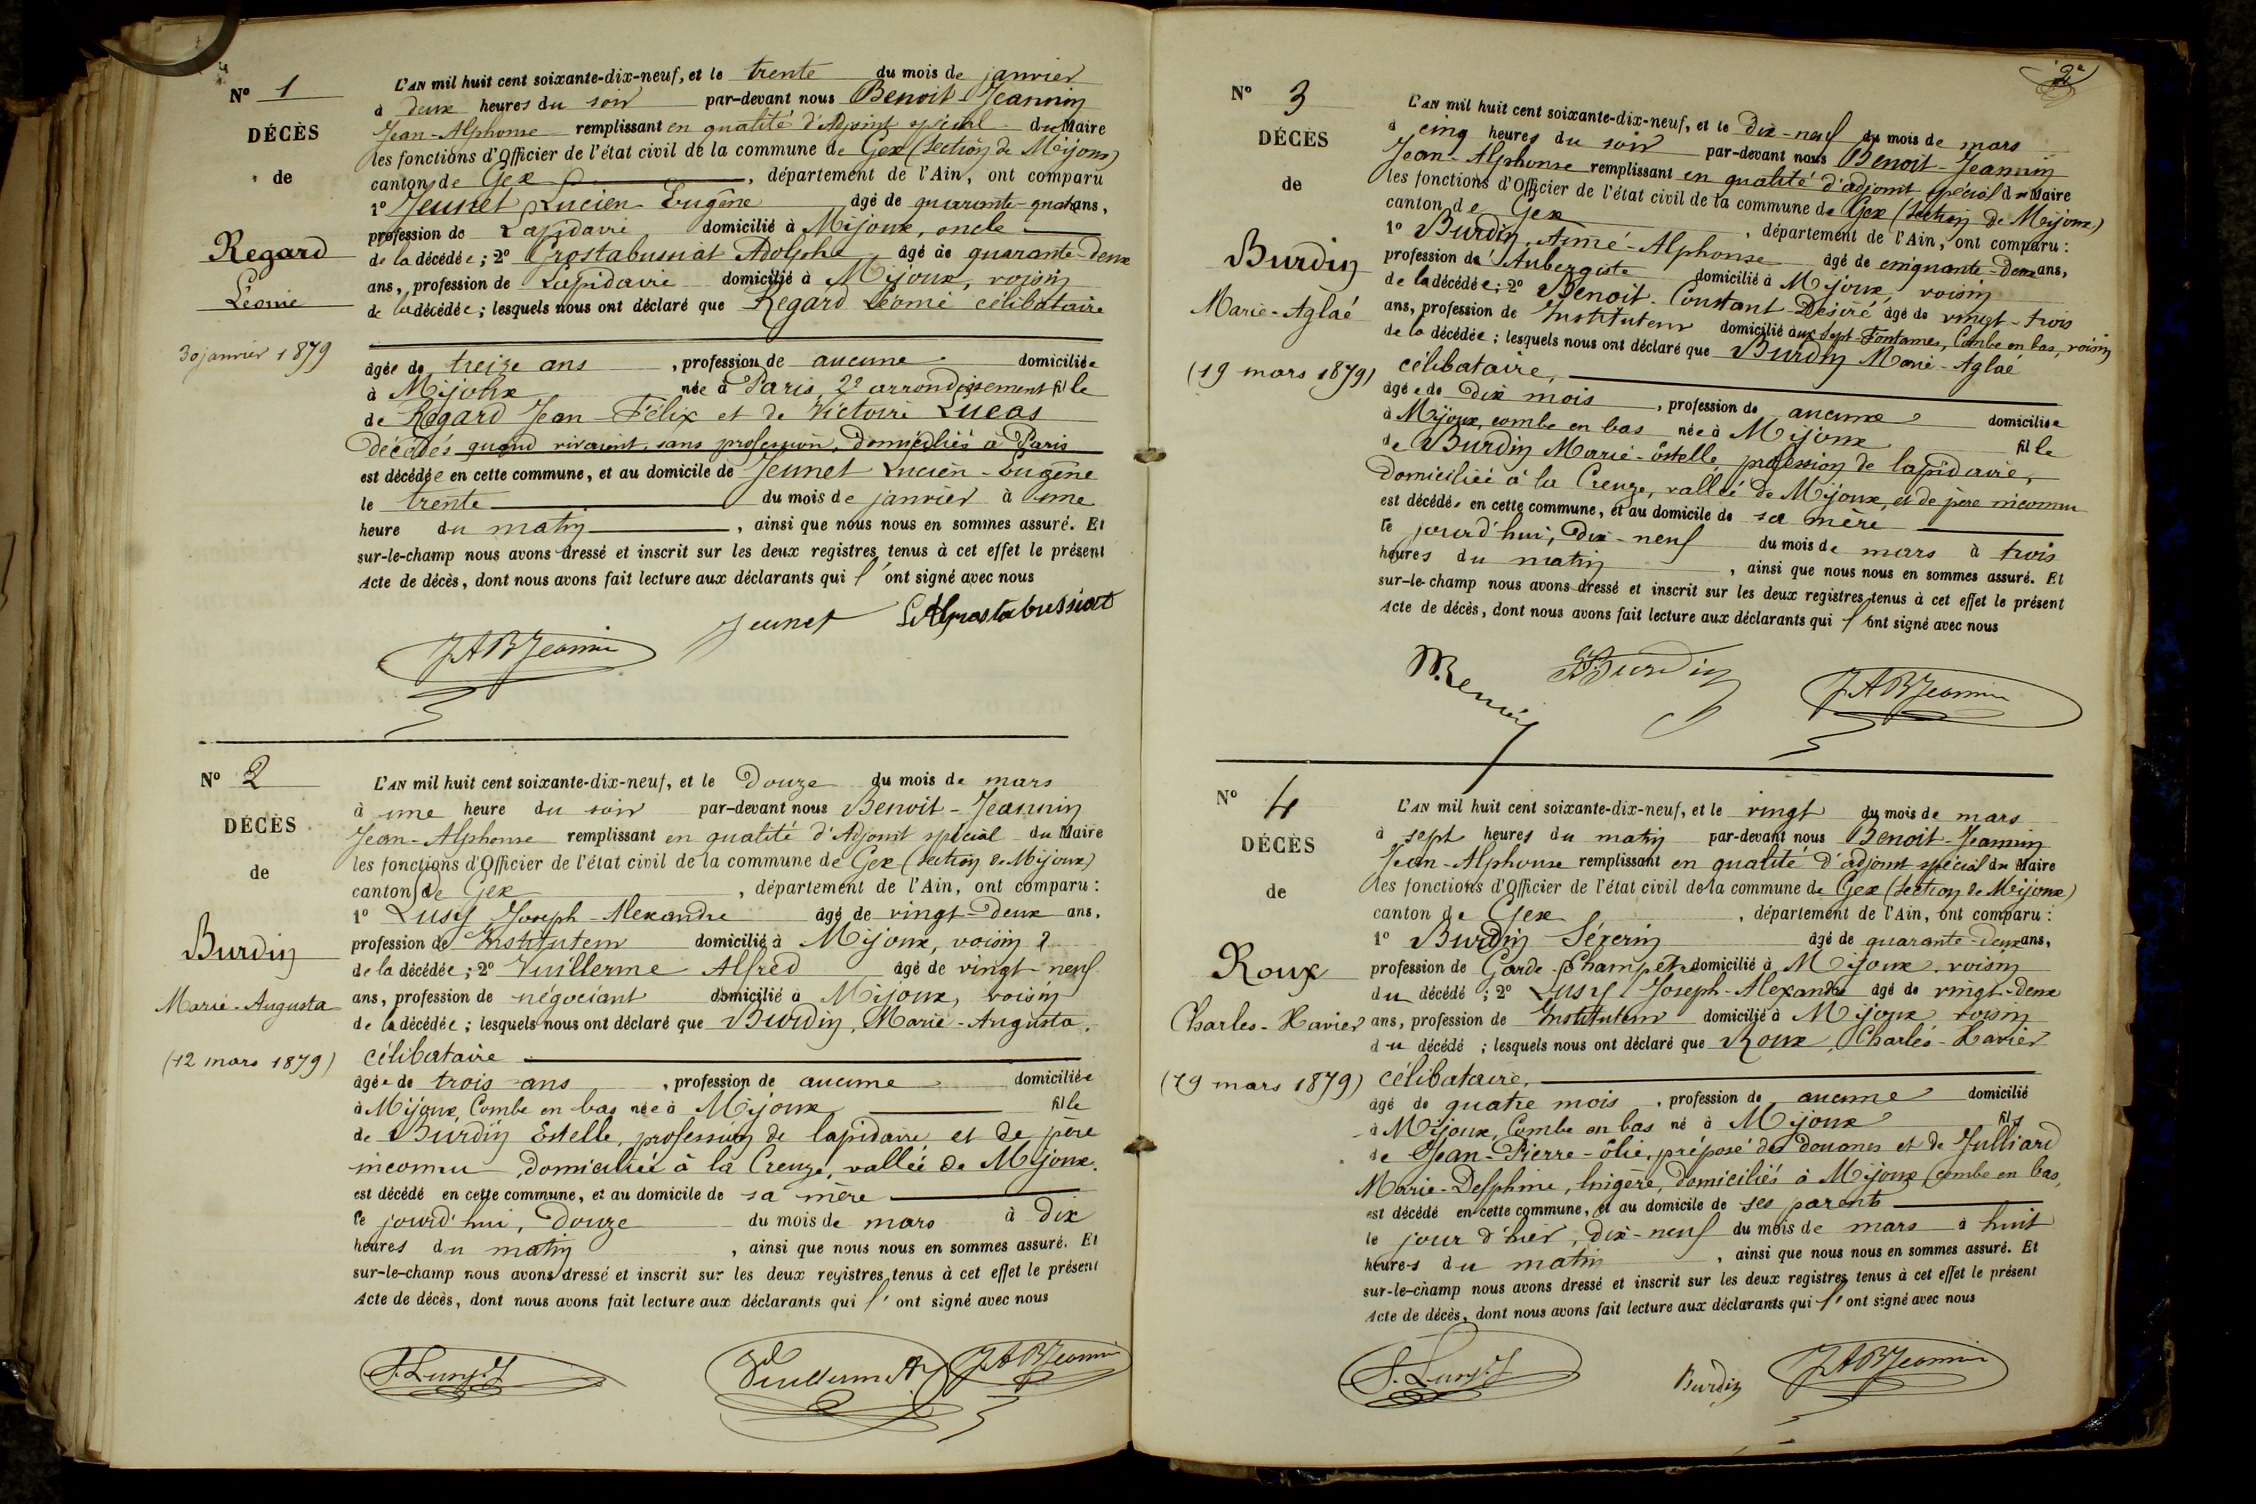 N° 1
DÉCÈS
de
Regard
Léonie
30 janvier 1879
L'AN mil huit cent soixante-dix-neuf, et le trente du mois de janvier
à deux heures du soir par-devant nous Benoit-Jeannin
Jean-Alphonse remplissant en qualité d'Adjoint spécial du Maire
les fonctions d'Officier de l'état civil de la commune de Gex (section de Mijoux)
canton de Gex, département de l'Ain, ont comparu
1° Jeunet Lucien Eugène âgé de quarante-quatre ans,
profession de Lapidaire domicilié à Mijoux, oncle
de la décédée ; 2° Grostabussiat Adolphe âgé de quarante-deux
ans, profession de Lapidaire domicilié à Mijoux, voisin
de la décédée ; lesquels nous ont déclaré que Regard Léonie célibataire
âgée de treize ans, profession de aucune domiciliée
à Mijoux née à Paris, 2e arrondissement fille
de Regard Jean-Félix et de Victoire Lucas
décédés quand vivaient, sans profession, domiciliés à Paris
est décédée en cette commune, et au domicile de Jeunet Lucien-Eugène
le trente du mois de janvier à une
heure du matin, ainsi que nous nous en sommes assuré. Et
sur-le-champ nous avons dressé et inscrit sur les deux registres tenus à cet effet le présent
Acte de décès, dont nous avons fait lecture aux déclarants qui l'ont signé avec nous
Jeunet Grostabussiat
JABJeannin
N° 2
DÉCÈS
de
Burdin
Marie-Augusta
(12 mars 1879)
L'AN mil huit cent soixante-dix-neuf, et le Douze du mois de mars
à une heure du soir par-devant nous Benoit-Jeannin
Jean-Alphonse remplissant en qualité d'Adjoint spécial du Maire
les fonctions d'Officier de l'état civil de la commune de Gex (section de Mijoux)
canton de Gex, département de l'Ain, ont comparu :
1° Lusy Joseph-Alexandre âgé de vingt-deux ans,
profession de Instituteur domicilié à Mijoux, voisin
de la décédée ; 2° Vuillerme Alfred âgé de vingt-neuf
ans, profession de négociant domicilié à Mijoux, voisin
de la décédée ; lesquels nous ont déclaré que Burdin, Marie-Augusta,
célibataire
âgée de trois ans, profession de aucune domiciliée
à Mijoux, Combe en bas née à Mijoux fille
de Burdin Estelle, profession de lapidaire et de père
inconnu, domiciliée à la Creuze, vallée de Mijoux.
est décédé en cette commune, et au domicile de sa mère
le jourd'hui, Douze du mois de mars à dix
heures du matin, ainsi que nous nous en sommes assuré. Et
sur-le-champ nous avons dressé et inscrit sur les deux registres tenus à cet effet le présent
Acte de décès, dont nous avons fait lecture aux déclarants qui l'ont signé avec nous
JABJeannin
2e
N° 3
DÉCÈS
de
Burdin
Marie-Aglaé
(19 mars 1879)
L'AN mil huit cent soixante-dix-neuf, et le Dix-neuf du mois de mars
à cinq heures du soir par-devant nous Benoit-Jeannin
Jean-Alphonse remplissant en qualité d'adjoint spécial du Maire
les fonctions d'Officier de l'état civil de la commune de Gex (section de Mijoux)
canton de Gex, département de l'Ain, ont comparu :
1° Burdin, Aimé-Alphonse âgé de cinquante-deux ans,
profession de Aubergiste domicilié à Mijoux, voisin
de la décédée ; 2° Benoit-Constant Désiré âgé de vingt-trois
ans, profession de Instituteur domicilié aux sept-Fontaines, Combe en bas, voisin
de la décédée ; lesquels nous ont déclaré que Burdin Marie-Aglaé
célibataire,
âgée de dix mois, profession de aucune domiciliée
à Mijoux, combe en bas née à Mijoux fille
de Burdin Marie-Estelle, profession de lapidaire,
domiciliée à la Creuze, vallée de Mijoux, et de père inconnu
est décédée en cette commune, et au domicile de sa mère
le jourd'hui, Dix-neuf du mois de mars à trois
heures du matin, ainsi que nous nous en sommes assuré. Et
sur-le-champ nous avons dressé et inscrit sur les deux registres tenus à cet effet le présent
Acte de décès, dont nous avons fait lecture aux déclarants qui l'ont signé avec nous
Burdin JABJeannin
N° 4
DÉCÈS
de
Roux
Charles-Xavier
(19 mars 1879)
L'AN mil huit cent soixante-dix-neuf, et le vingt du mois de mars
à sept heures du matin par-devant nous Benoit-Jeannin
Jean-Alphonse remplissant en qualité d'adjoint spécial du Maire
les fonctions d'Officier de l'état civil de la commune de Gex (section de Mijoux)
canton de Gex, département de l'Ain, ont comparu :
1° Burdin Séverin âgé de quarante-deux ans,
profession de Garde-Champêtre domicilié à Mijoux, voisin
du décédé ; 2° Lusy Joseph-Alexandre âgé de vingt-deux
ans, profession de Instituteur domicilié à Mijoux voisin
du décédé ; lesquels nous ont déclaré que Roux, Charles-Xavier
célibataire,
âgé de quatre mois, profession de aucune domicilié
à Mijoux, Combe en bas né à Mijoux fils
de Jean-Pierre-Élie, préposé des douanes et de Julliard
Marie-Delphine, lingère, domiciliés à Mijoux combe en bas,
est décédé en cette commune, et au domicile de ses parents
le jour d'hier, dix-neuf du mois de mars à huit
heures du matin, ainsi que nous nous en sommes assuré. Et
sur-le-champ nous avons dressé et inscrit sur les deux registres tenus à cet effet le présent
Acte de décès, dont nous avons fait lecture aux déclarants qui l'ont signé avec nous
Burdin JABJeannin